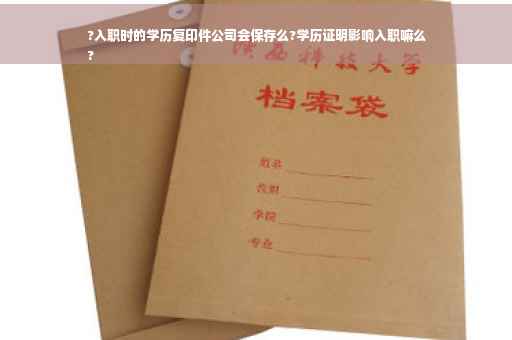 ?入职时的学历复印件公司会保存么?学历证明影响入职嘛么
?
科技大学
档案袋
姓名
学院
专业